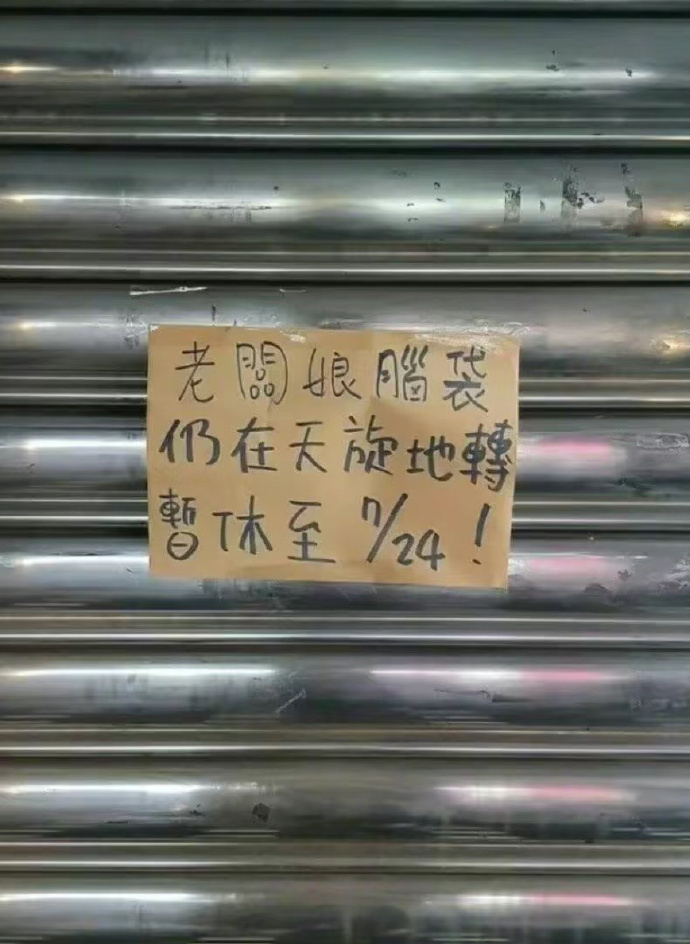 老闆娘腦袋
仍在天旋地轉
暫休至 7/24!